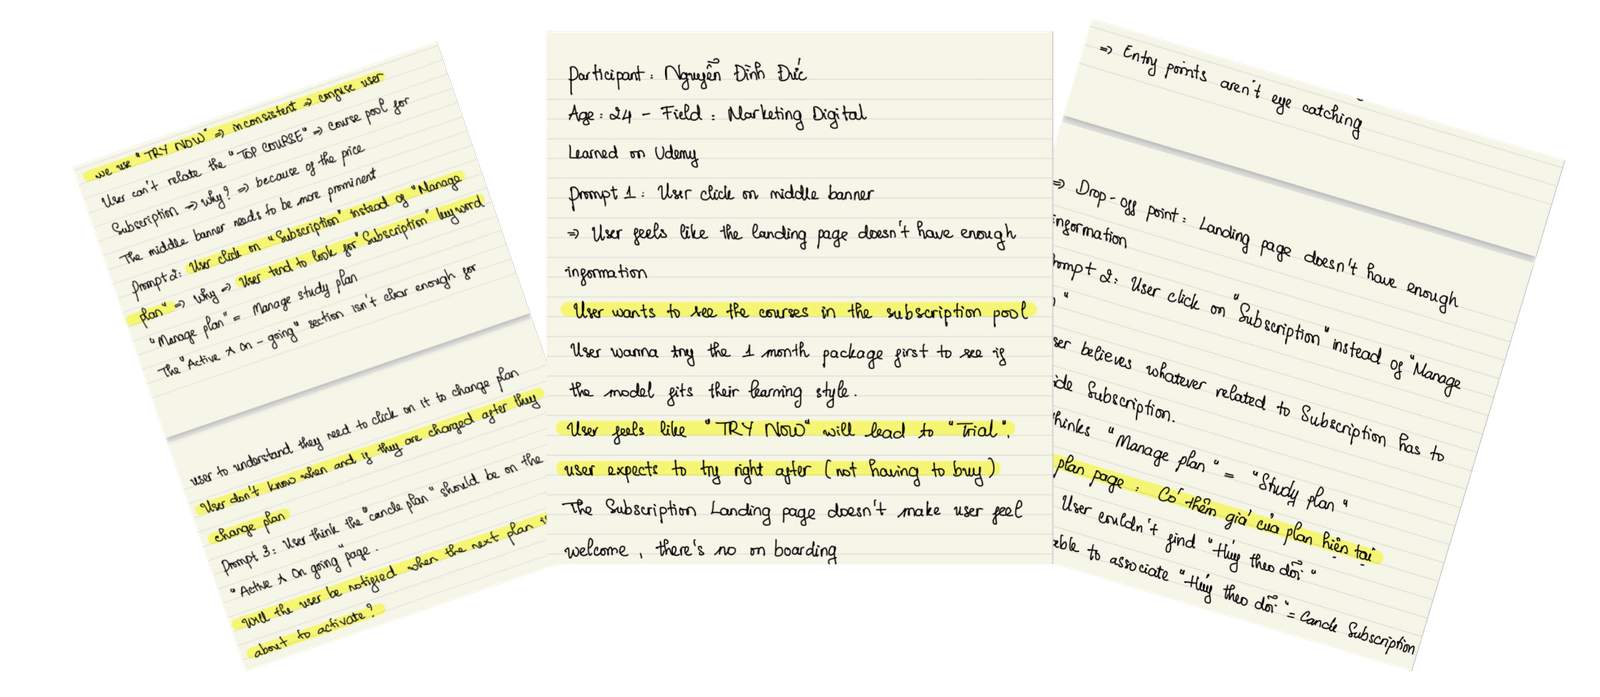 we use "TRY NOW" => inconsistent => confuse user
User can't relate the "TOP COURSE" => course pool for
Subscription => why? => because of the price
The middle banner needs to be more prominent
Prompt 2: User click on "Subscription" instead of "Manage
plan" => why => User tend to look for "Subscription" keyword
"Manage plan" = Manage study plan
The "Active & on-going" section isn't clear enough for
user to understand they need to click on it to change plan
User don't know when and if they are charged after they
change plan
Prompt 3: User think the "cancle plan" should be on the
"Active & On going" page.
Will the user be notified when the next plan is
about to activate?
Participant: Nguyễn Đình Đức
Age: 24 - Field: Marketing Digital
Learned on Udemy
Prompt 1: User click on middle banner
=> User feels like the landing page doesn't have enough
information
User wants to see the courses in the subscription pool
User wanna try the 1 month package first to see if
the model fits their learning style.
User feels like "TRY NOW" will lead to "Trial",
user expects to try right after (not having to buy)
The Subscription Landing page doesn't make user feel
welcome, there's no on boarding
=> Entry points aren't eye catching
=> Drop-off point: Landing page doesn't have enough
information
ompt 2: User click on "Subscription" instead of "Manage
"
ser believes whatever related to Subscription has to
ide Subscription.
hinks "Manage plan" = "Study plan"
plan page: Có thêm giá của plan hiện tại
User couldn't find "Hủy theo dõi"
able to associate "Hủy theo dõi" = Cancle Subscription